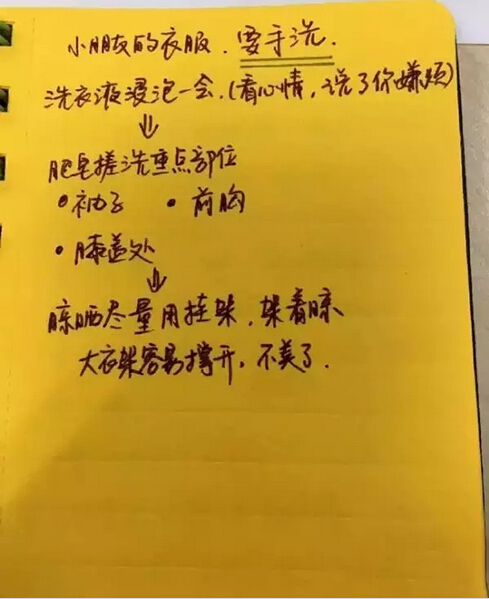 小朋友的衣服.要手洗.
洗衣液浸泡一会.(看心情,说了你嫌烦)
⇓
肥皂搓洗重点部位
•袖子 •前胸
•膝盖处
⇓
晾晒尽量用挂架.架着晾
大衣架容易撑开,不美了.